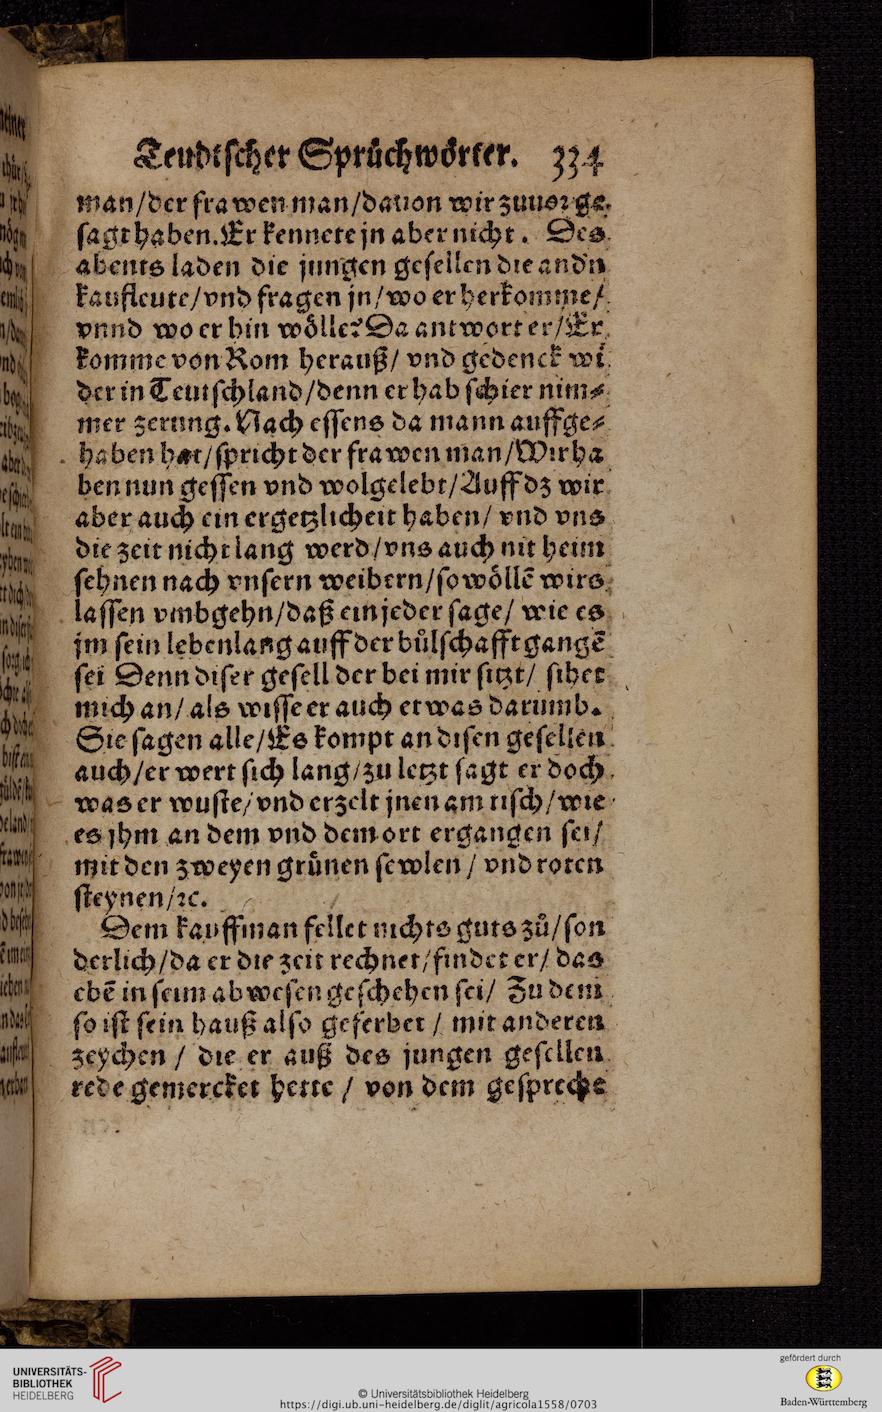 Teudtscher Sprůchwörter. 334
man/der frawen man/dauon wir zuuor ge-
sagt haben. Er kennete jn aber nicht. Des
abents laden die jungen gesellen die and'n
kaufleute/vnd fragen jn/wo er herkomme/
vnnd wo er hin wölle? Da antwort er/Er
komme von Rom herauß/ vnd gedenck wi
der in Teutschland/denn er hab schier nim-
mer zerung. Nach essens da mann auffge-
haben hat/spricht der frawen man/Wir ha
ben nun gessen vnd wolgelebt/Auff dz wir
aber auch ein ergetzlicheit haben/ vnd vns
die zeit nicht lang werd/vns auch nit heim
sehnen nach vnsern weibern/so wöllē wirs
lassen vmbgehn/daß ein jeder sage/ wie es
jm sein lebenlang auff der bůlschafft gangē
sei Denn diser gesell der bei mir sitzt/ sihet
mich an/ als wisse er auch etwas darumb.
Sie sagen alle/Es kompt an disen gesellen
auch/er wert sich lang/zu letzt sagt er doch
was er wuste/vnd erzelt jnen am tisch/wie
es jhm an dem vnd dem ort ergangen sei/
mit den zweyen grůnen sewlen / vnd roten
steynen/ꝛc.
Dem kauffman fellet nichts guts zů/son
derlich/da er die zeit rechnet/findet er/ das
ebē in seim abwesen geschehen sei/ Zu dem
so ist sein hauß also geferbet / mit anderen
zeychen / die er auß des jungen gesellen
rede gemercket hette / von dem gespreche
UNIVERSITÄTS-
BIBLIOTHEK
HEIDELBERG
© Universitätsbibliothek Heidelberg
https://digi.ub.uni-heidelberg.de/diglit/agricola1558/0703
gefördert durch
Baden-Württemberg